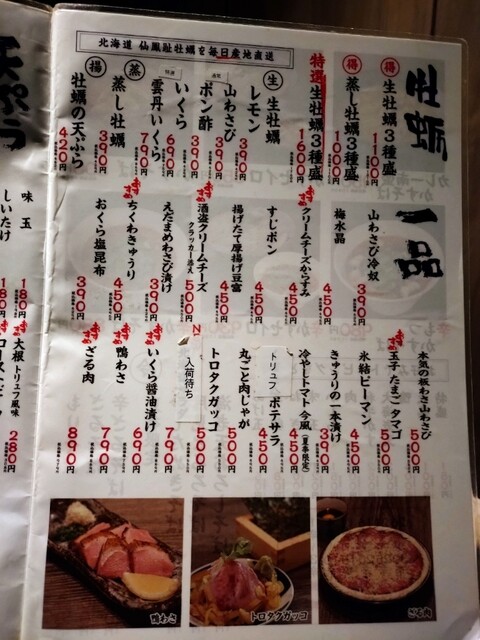 北海道 仙鳳趾牡蠣を毎日産地直送
牡蛎
得 生牡蠣3種盛 1100円
得 蒸し牡蠣3種盛 1100円
特選生牡蠣3種盛 1600円
生 生牡蠣
レモン 390円
山わさび 390円
ポン酢 390円
いくら 690円
雲丹いくら 790円
蒸 蒸し牡蠣 390円
揚 牡蠣の天ぷら 420円
一品
山わさび冷奴 390円
梅水晶 450円
クリームチーズからすみ 450円
すじポン 450円
揚げたて厚揚げ豆富 450円
酒盗クリームチーズ
クラッカー添え 500円
えだまめわさび漬け 390円
ちくわきゅうり 450円
おくら塩昆布 390円
本気の板わさ山わさび 500円
玉子・たまご・タマゴ 500円
氷結ピーマン 450円
きゅうりの一本漬け 390円
冷やしトマト今風(夏季限定) 450円
トリュフ ポテサラ 450円
丸ごと肉じゃが 500円
トロタクガッコ 500円
入荷待ち 790円
いくら醤油漬け 690円
鴨わさ 790円
ざる肉 890円
鴨わさ
トロタクガッコ
ざる肉
天ぷら
味玉 180円
しいたけ 180円
大根 トリュフ風味 280円